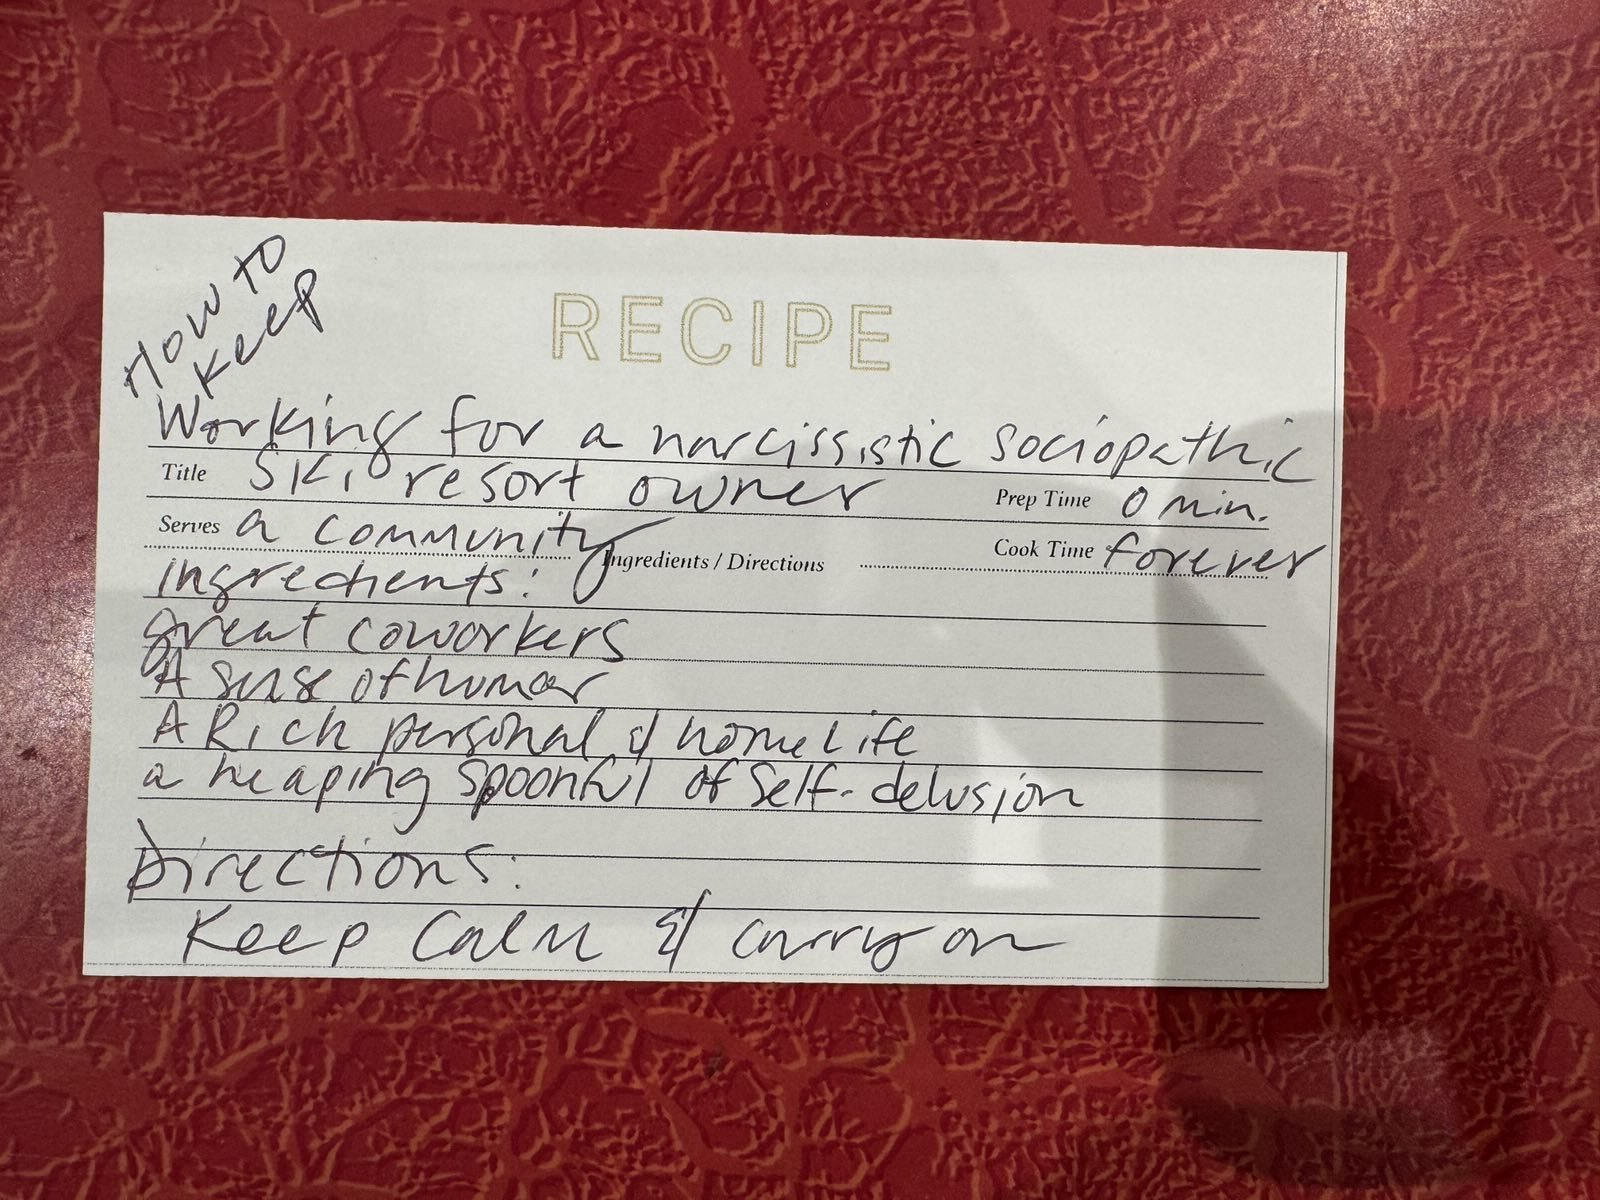 How to
Keep
RECIPE
Working for a narcissistic sociopathic
Title Ski resort owner Prep Time 0 min.
Serves a community Ingredients / Directions Cook Time forever
Ingredients:
great coworkers
A sense of humor
A Rich personal & home Life
a heaping spoonful of self-delusion
Directions:
Keep Calm & carry on